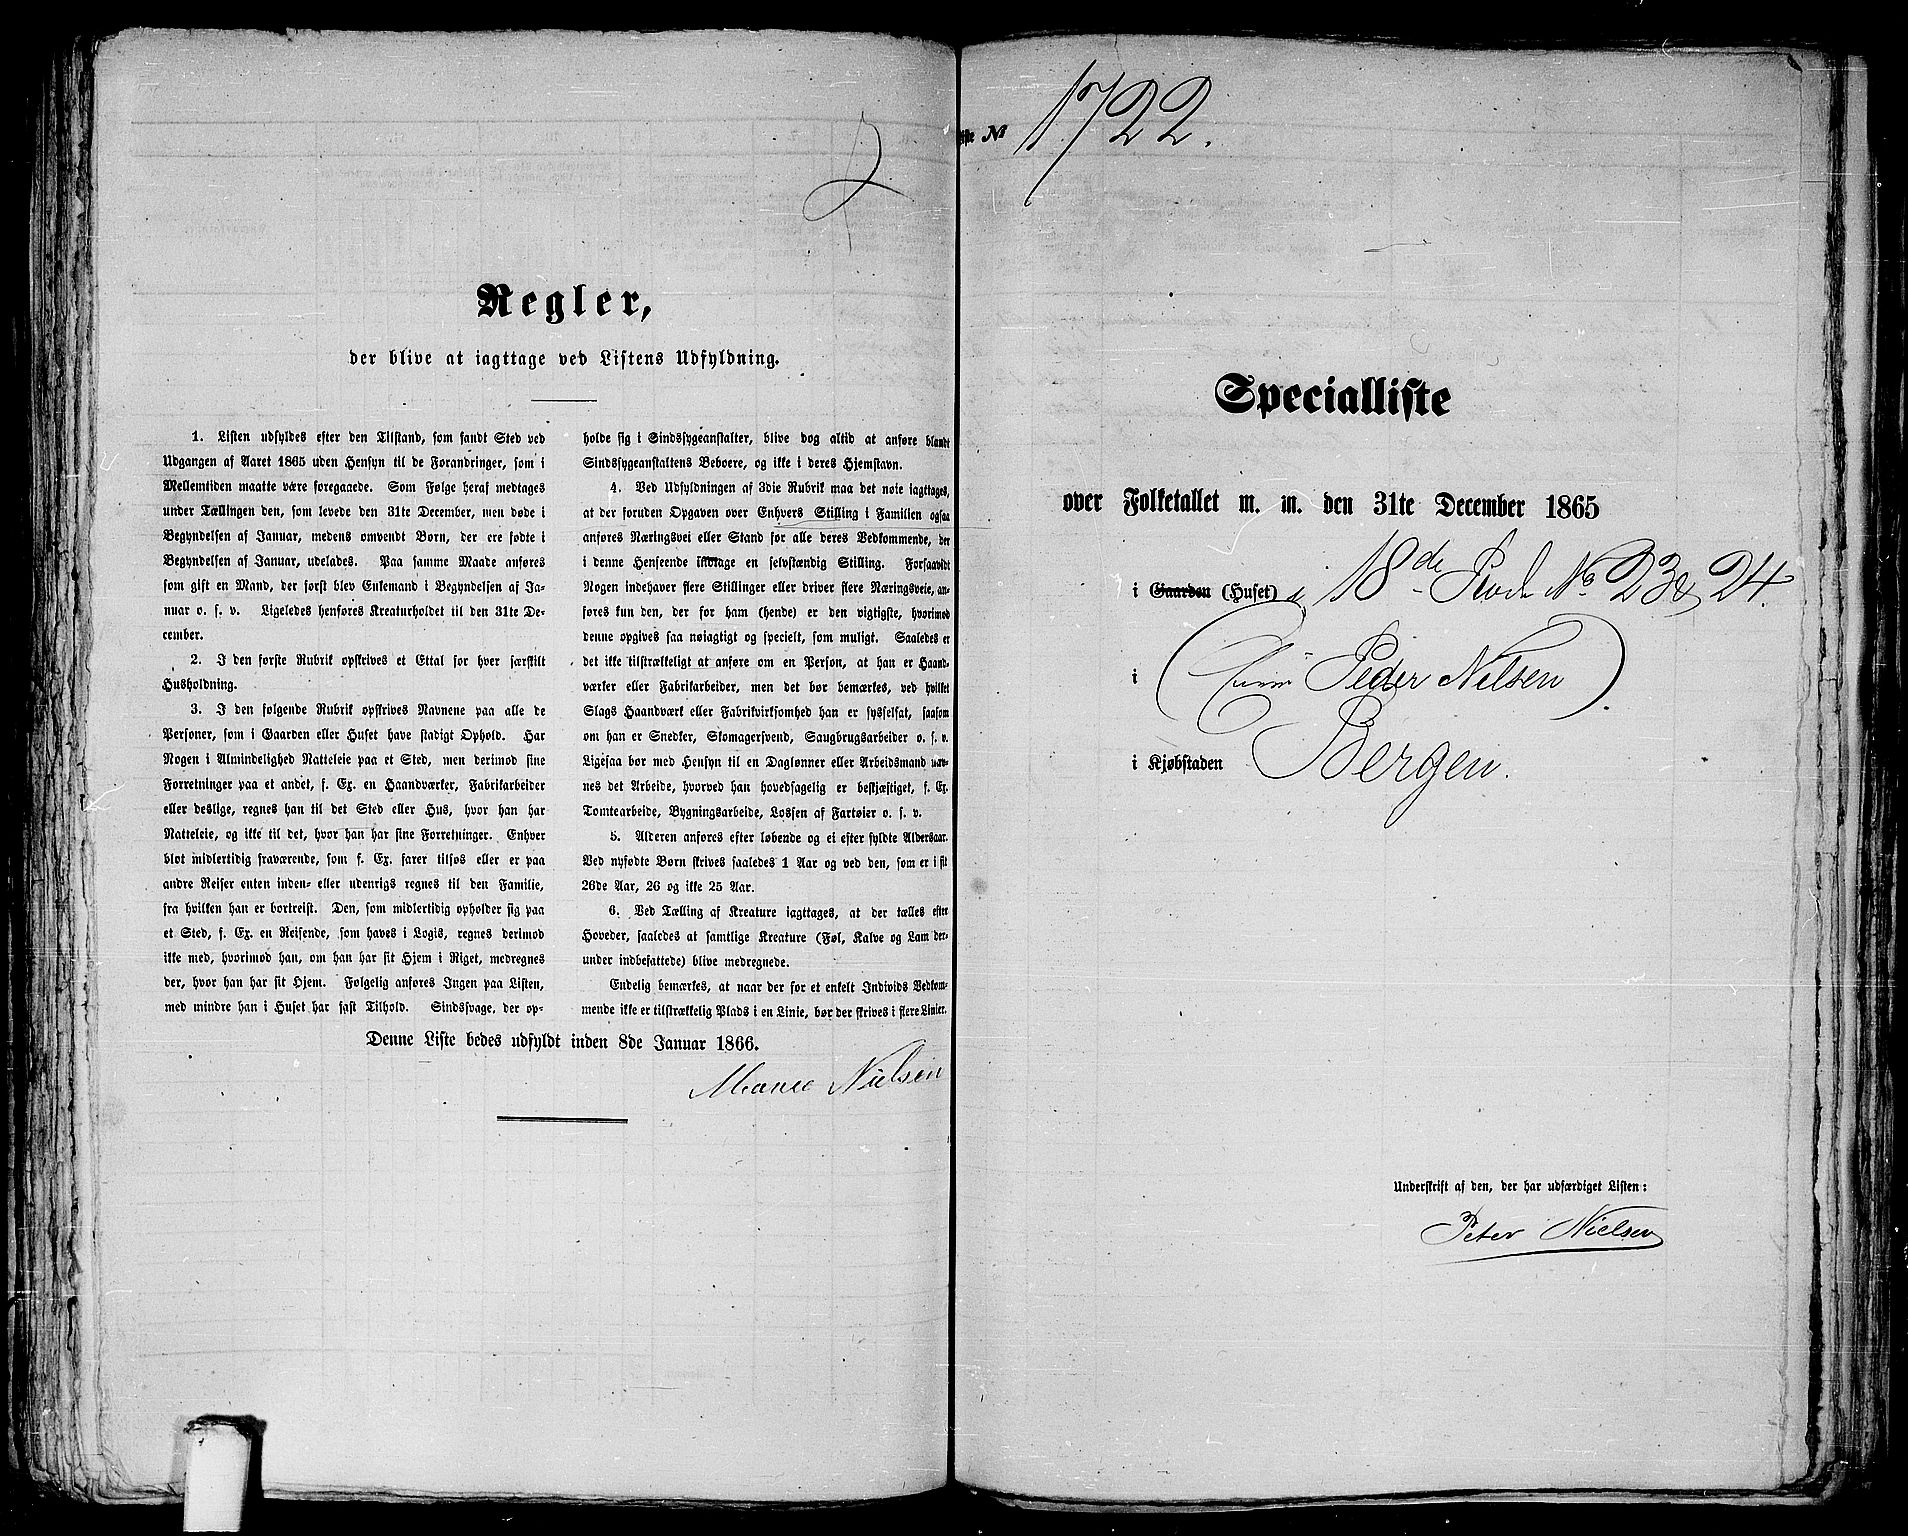 Regler,
der blive at iagttage ved Listens Udfyldning.
1. Listen udfyldes efter den Tilstand, som fandt Sted ved
Udgangen af Aaret 1865 uden Hensyn til de Forandringer, som i
Mellemtiden maatte være foregaaede. Som Følge heraf medtages
under Tællingen den, som levede den 31te December, men døde i
Begyndelsen af Januar, medens omvendt Børn, der ere fødte i
Begyndelsen af Januar, udelades. Paa samme Maade anføres
som gift en Mand, der først blev Enkemand i Begyndelsen af Ja-
nuar o. s. v. Ligeledes henføres Kreaturholdet til den 31te De-
cember.
2. I den første Rubrik opskrives et Ettal for hver særskilt
Husholdning.
3. I den følgende Rubrik opskrives Navnene paa alle de
Personer, som i Gaarden eller Huset have stadigt Ophold. Har
Nogen i Almindelighed Natteleie paa et Sted, men derimod sine
Forretninger paa et andet, f. Ex. en Haandværker, Fabrikarbeider
eller deslige, regnes han til det Sted eller Hus, hvor han har
Natteleie, og ikke til det, hvor han har sine Forretninger. Enhver
blot midlertidig fraværende, som f. Ex. farer tilsøs eller er paa
andre Reiser enten inden- eller udenrigs regnes til den Familie,
fra hvilken han er bortreist. Den, som midlertidig opholder sig paa
et Sted, f. Ex. en Reisende, som haves i Logis, regnes derimod
ikke med, hvorimod han, om han har sit Hjem i Riget, medregnes
der, hvor han har sit Hjem. Følgelig anføres Ingen paa Listen,
med mindre han i Huset har fast Tilhold. Sindssvage, der op-
holde sig i Sindssygeanstalter, blive dog altid at anføre blandt
Sindssygeanstaltens Beboere, og ikke i deres Hjemstavn.
4. Ved Udfyldningen af 3die Rubrik maa det nøie iagttages,
at der foruden Opgaven over Enhvers Stilling i Familien ogsaa
anføres Næringsvei eller Stand for alle deres Vedkommende, der
i denne Henseende indtage en selvstændig Stilling. Forsaavidt
Nogen indehaver flere Stillinger eller driver flere Næringsveie, an-
føres kun den, der for ham (hende) er den vigtigste, hvorimod
denne opgives saa nøiagtigt og specielt, som muligt. Saaledes er
det ikke tilstrækkeligt at anføre om en Person, at han er Haand-
værker eller Fabrikarbeider, men det bør bemærkes, ved hvilket
Slags Haandværk eller Fabrikvirksomhed han er sysselsat, saasom
om han er Snedker, Skomagersvend, Saugbrugsarbeider o. s. v.
Ligesaa bør med Hensyn til en Daglønner eller Arbeidsmand næv-
nes det Arbeide, hvorved han hovedsagelig er beskjæftiget, f. Ex.
Tomtearbeide, Bygningsarbeide, Lossen af Fartøier o. s. v.
5. Alderen anføres efter løbende og ei efter fyldte Aldersaar.
Ved nyfødte Børn skrives saaledes 1 Aar og ved den, som er i sit
26de Aar, 26 og ikke 25 Aar.
6. Ved Tælling af Kreature iagttages, at der tælles efter
Hoveder, saaledes at samtlige Kreature (Føl, Kalve og Lam der-
under indbefattede) blive medregnede.
Endelig bemærkes, at naar der for et enkelt Individs Vedkom-
mende ikke er tilstrækkelig Plads i en Linie, bør der skrives i flere Linier.
Denne Liste bedes udfyldt inden 8de Januar 1866.
Nielsen
iste № 1722.
Specialliste
over Folketallet m. m. den 31te December 1865
i Gaarden (Huset) i 18de Rode No 23 & 24.
i Peder Nilsen
i Kjøbstaden Bergen.
Underskrift af den, der har udfærdiget Listen:
Peter Nielsen